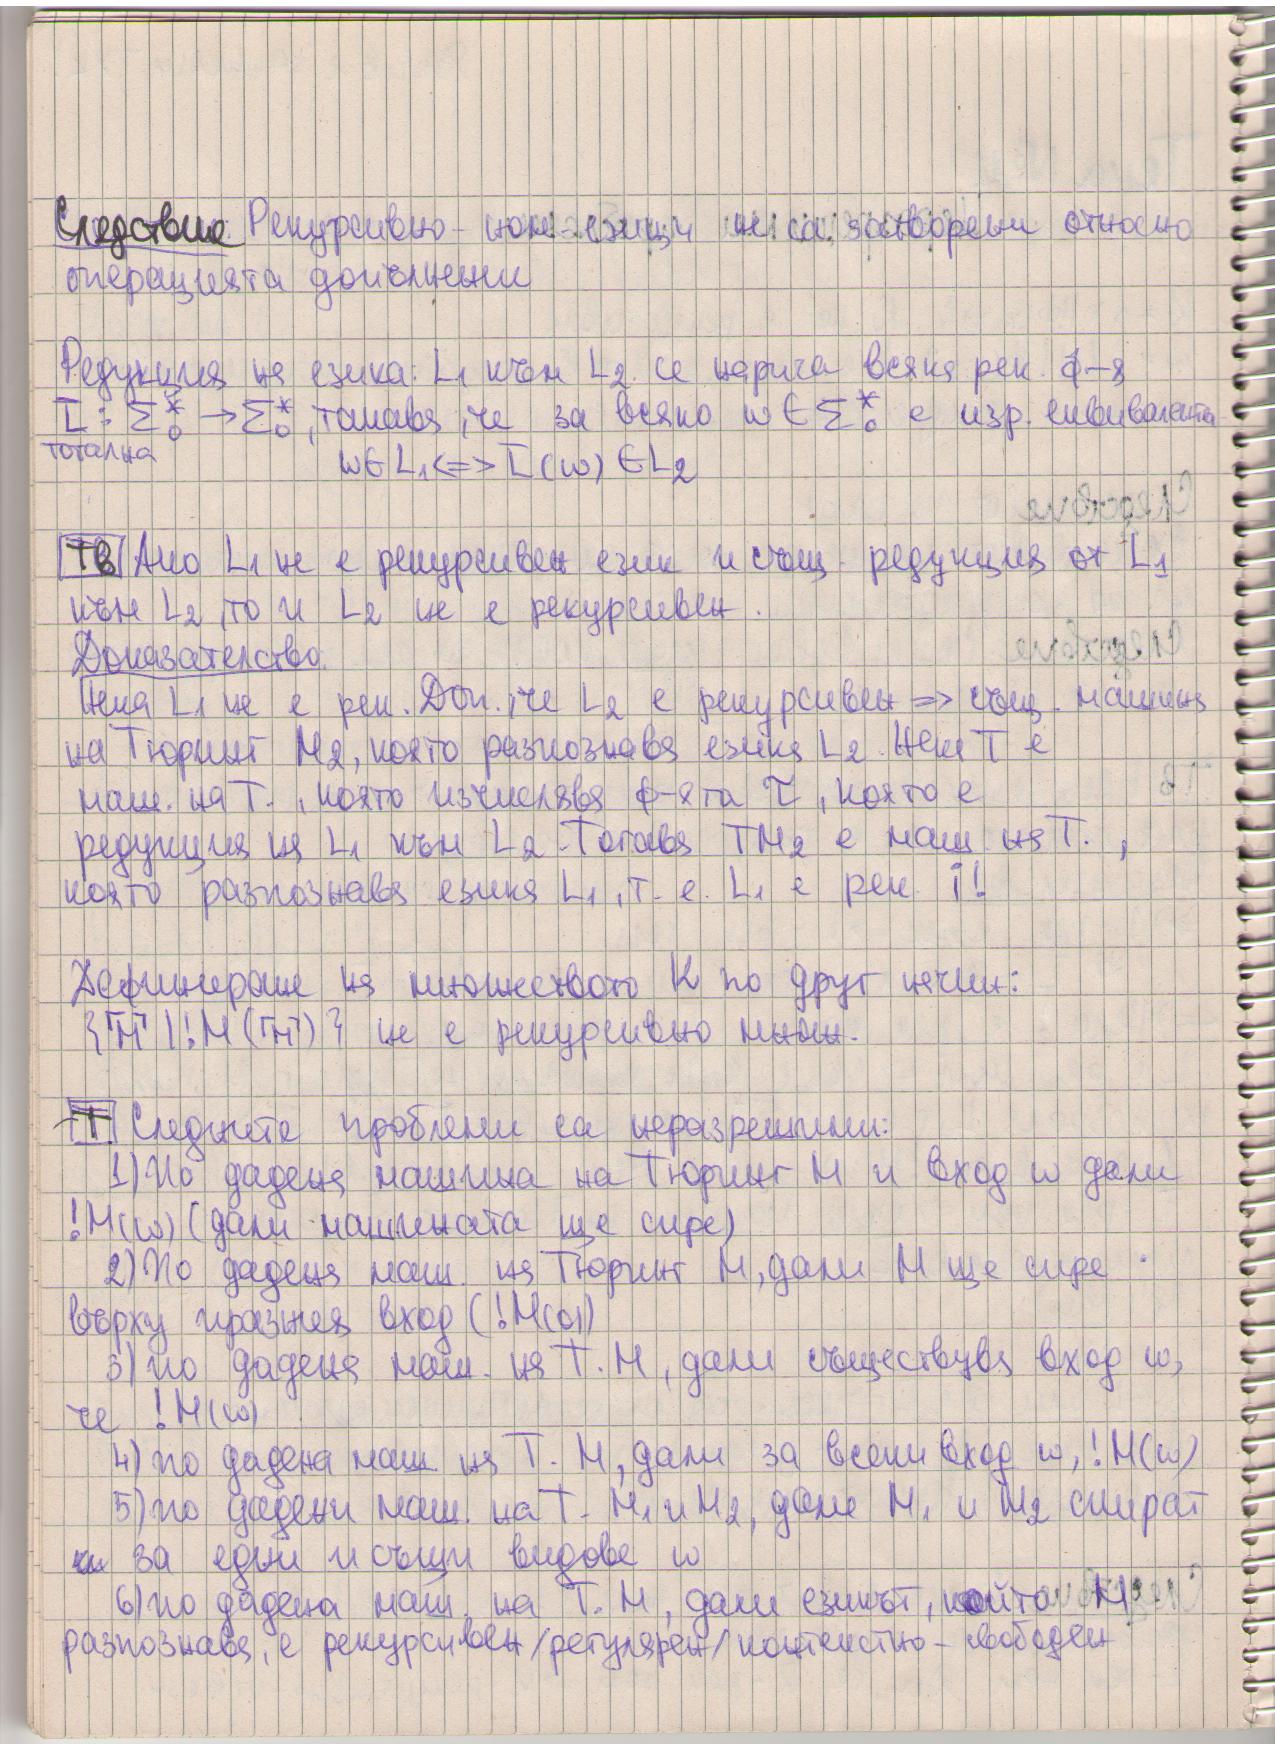 Следствие: Рекурсивно-ном. езици не са затворени относно
операцията допълнение
Редукция на езика L₁ към L₂ се нарича всяка рек. ф-я
τ: Σ₀* → Σ₀*, такава, че за всяко w∈Σ₀* е изр. еквивалента
тотална
w∈L₁ <=> τ(w)∈L₂
Тв Ако L₁ не е рекурсивен език и същ. редукция от L₁
към L₂, то и L₂ не е рекурсивен.
Доказателство.
Нека L₁ не е рек. Доп., че L₂ е рекурсивен => същ. машина
на Тюринг M₂, която разпознава езика L₂. Нека T е
маш. на Т., която изчислява ф-ята τ, която е
редукция на L₁ към L₂. Тогава TM₂ е маш. на Т.,
която разпознава езика L₁, т. е. L₁ е рек. i!
Дефинираме на множеството K по друг начин:
{⌜M⌝ | !M(⌜M⌝)} не е рекурсивно множ.
Т Следните проблеми са неразрешими:
1) По дадена машина на Тюринг M и вход w дали
!M(w) (дали машината ще спре)
2) По дадена маш. на Тюринг M, дали M ще спре
върху празния вход (!M(
3) по дадена маш. на Т. M, дали съществува вход w,
че !M(w)
4) по дадена маш. на Т. M, дали за всеки вход w, !M(w)
5) по дадени маш. на Т. M₁ и M₂, дали M₁ и M₂ спират
за едни и същи входове w
6) по дадена маш. на Т. M, дали езикът, който M
разпознава, е рекурсивен/регулярен/контекстно-свободен